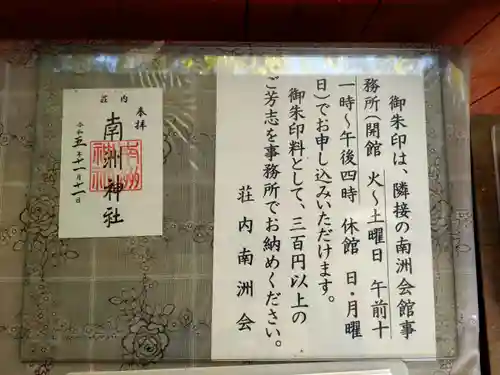 御朱印は、隣接の南洲会館事
務所(開館 火～土曜日 午前十
一時～午後四時 休館 日・月曜
日)でお申し込みいただけます。
御朱印料として、三百円以上の
ご芳志を事務所でお納めください。
荘内南洲会
奉拝
荘内
南洲神社
南洲
神社
令和五年十一月十一日